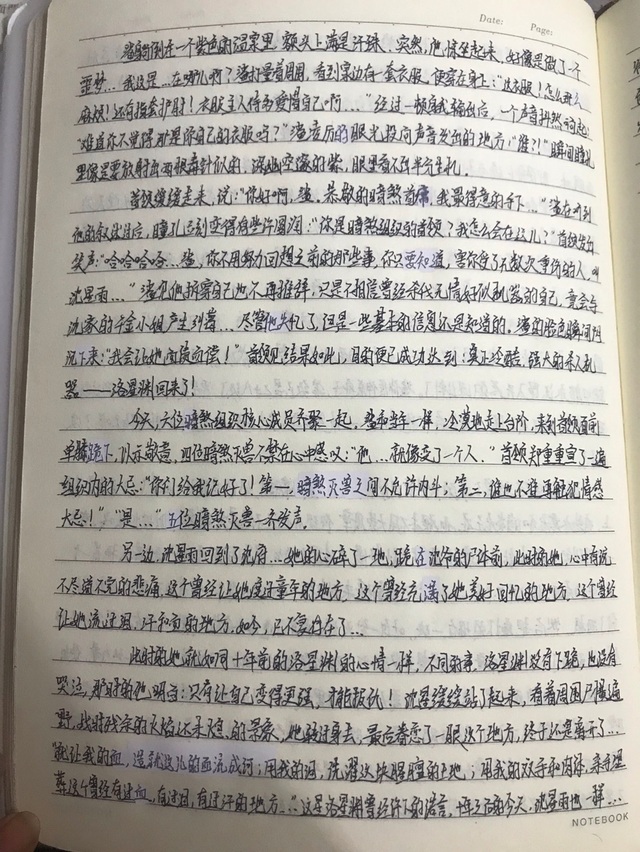 Date: Page:
渊躺倒在一个紫色的温泉里,额头上满是汗珠,突然,他惊坐起来,好像是做了个
噩梦…"我这是…在哪儿啊?"渊打量着周围,看到泉边有一套衣服,便穿在身上:"这衣服!怎么那么
麻烦!还有指套护肘!衣服主人得多爱惜自己啊…"经过一顿疯狂输出后,一个声音抖然响起:
"难道你不觉得那是你自己的衣服吗?"渊凌厉的眼光投向声音发出的地方:"谁?!"瞬间瞳孔
里像是要放射出两根毒针似的,深幽空邃的紫,眼里看不到半点生机。
首领缓缓走来,说:"你好啊,渊。恭敬的暗煞首席,我最得意的手下…"渊在听到
他的叙述过后,瞳孔迅刻变得有些许圆润:"你是暗煞组织的首领?我怎么会在这儿?"首领发出
笑声:"哈哈哈哈…渊,你不用努力回想之前的那些事,你只要知道,害你受了无数次重伤的人,叫
沈星雨…"渊见他拆穿自己也不再推辞,只是不相信曾经杀伐无情好似机器的自己,竟会与
沈家的千金小姐产生纠葛…尽管他失忆了,但是一些基本的信息还是知道的。渊的脸色瞬间阴
沉下来:"我会让她血债血偿!"首领见结果如此,目的便已成功达到:真正冷酷、强大的杀人机
器——洛星渊回来了!
今天,六位暗煞组织核心成员齐聚一起,渊和当年一样,冷漠地走上台阶,来到首领面前
单膝跪下,以示敬意,四位暗煞灭兽不禁在心中感叹:"他…就像变了一个人。"首领郑重重宣了一遍
组织内的大忌:"你们给我记好了!第一,暗煞灭兽之间不允许内斗;第二,谁也不准再触犯情感
大忌!""是…"五位暗煞灭兽一齐发声。
另一边,沈星雨回到了沈府…她的心碎了一地,跪在沈爷的尸体前,此时的她,心中有说
不尽道不完的悲痛,这个曾经让她度过童年的地方,这个曾经充满了她美好回忆的地方,这个曾经
让她流过泪、汗和血的地方,如今,已不复存在了…
此时的她就如同十年前的洛星渊的心情一样,不同的事,洛星渊没有下跪,也没有
哭泣,那时的他明白:只有让自己变得更强,才能报仇!沈星雨缓缓站了起来,看着周围尸横遍
野,战时残余的火焰还未熄的景象,她转过身去,最后眷恋了一眼这个地方,终于还是离开了…
"就让我的血,造就这儿的血流成河;用我的泪,洗濯这块腥膻的土地;用我的双手和肉体,亲手埋
葬这个曾经有过血、有过泪、有过汗的地方…"这是洛星渊曾经许下的诺言,十年之后的今天,沈星雨也一样…
NOTEBOOK